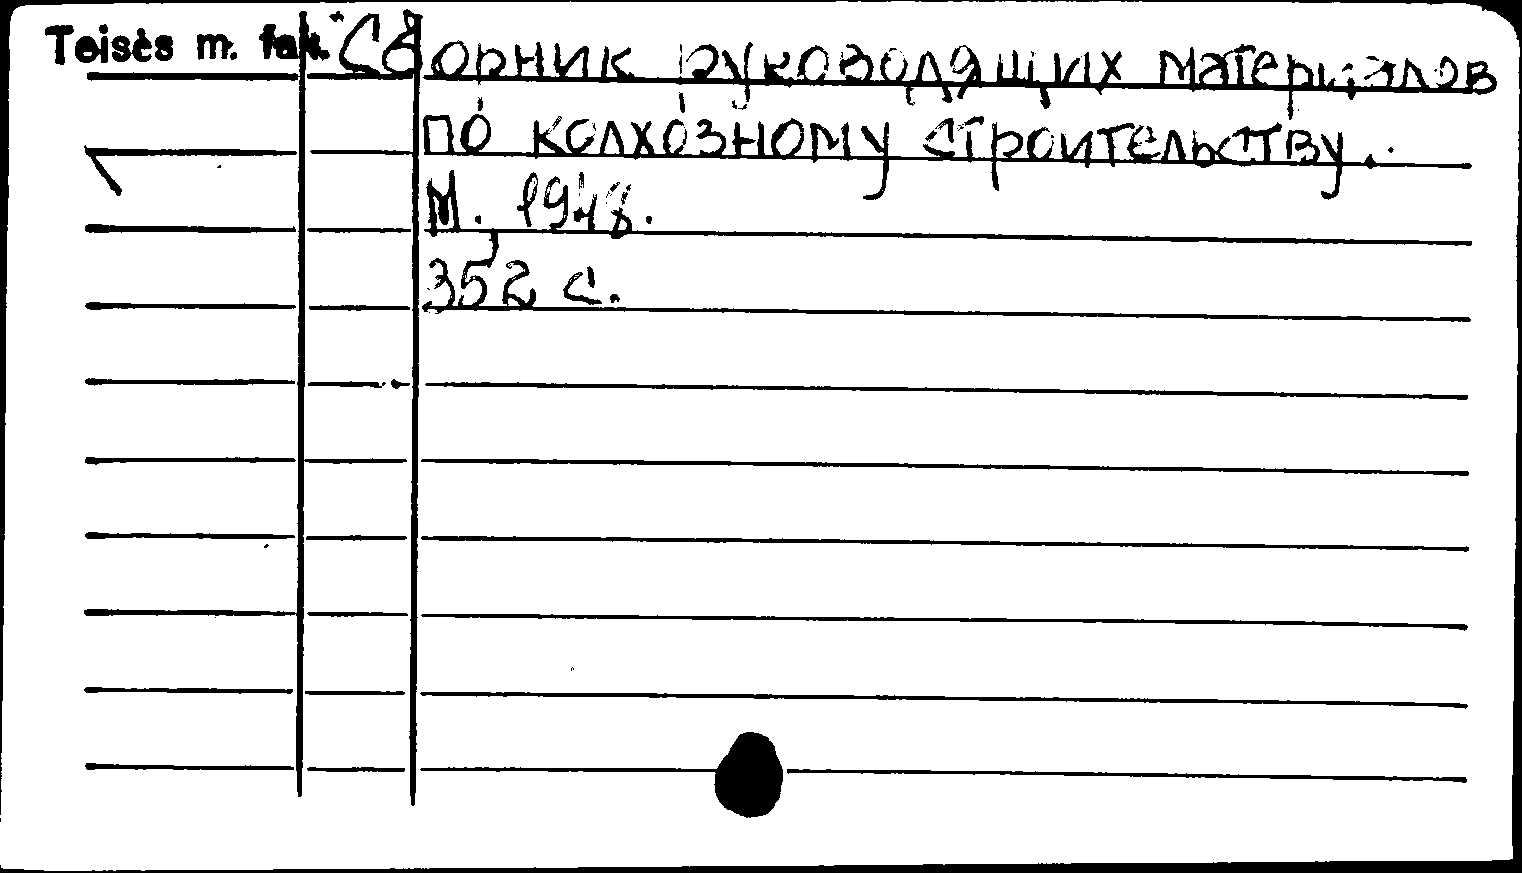 Teisės m. fak. Сборник руководящих материалов
по колхозному строительству.
М., 1948.
352 с.